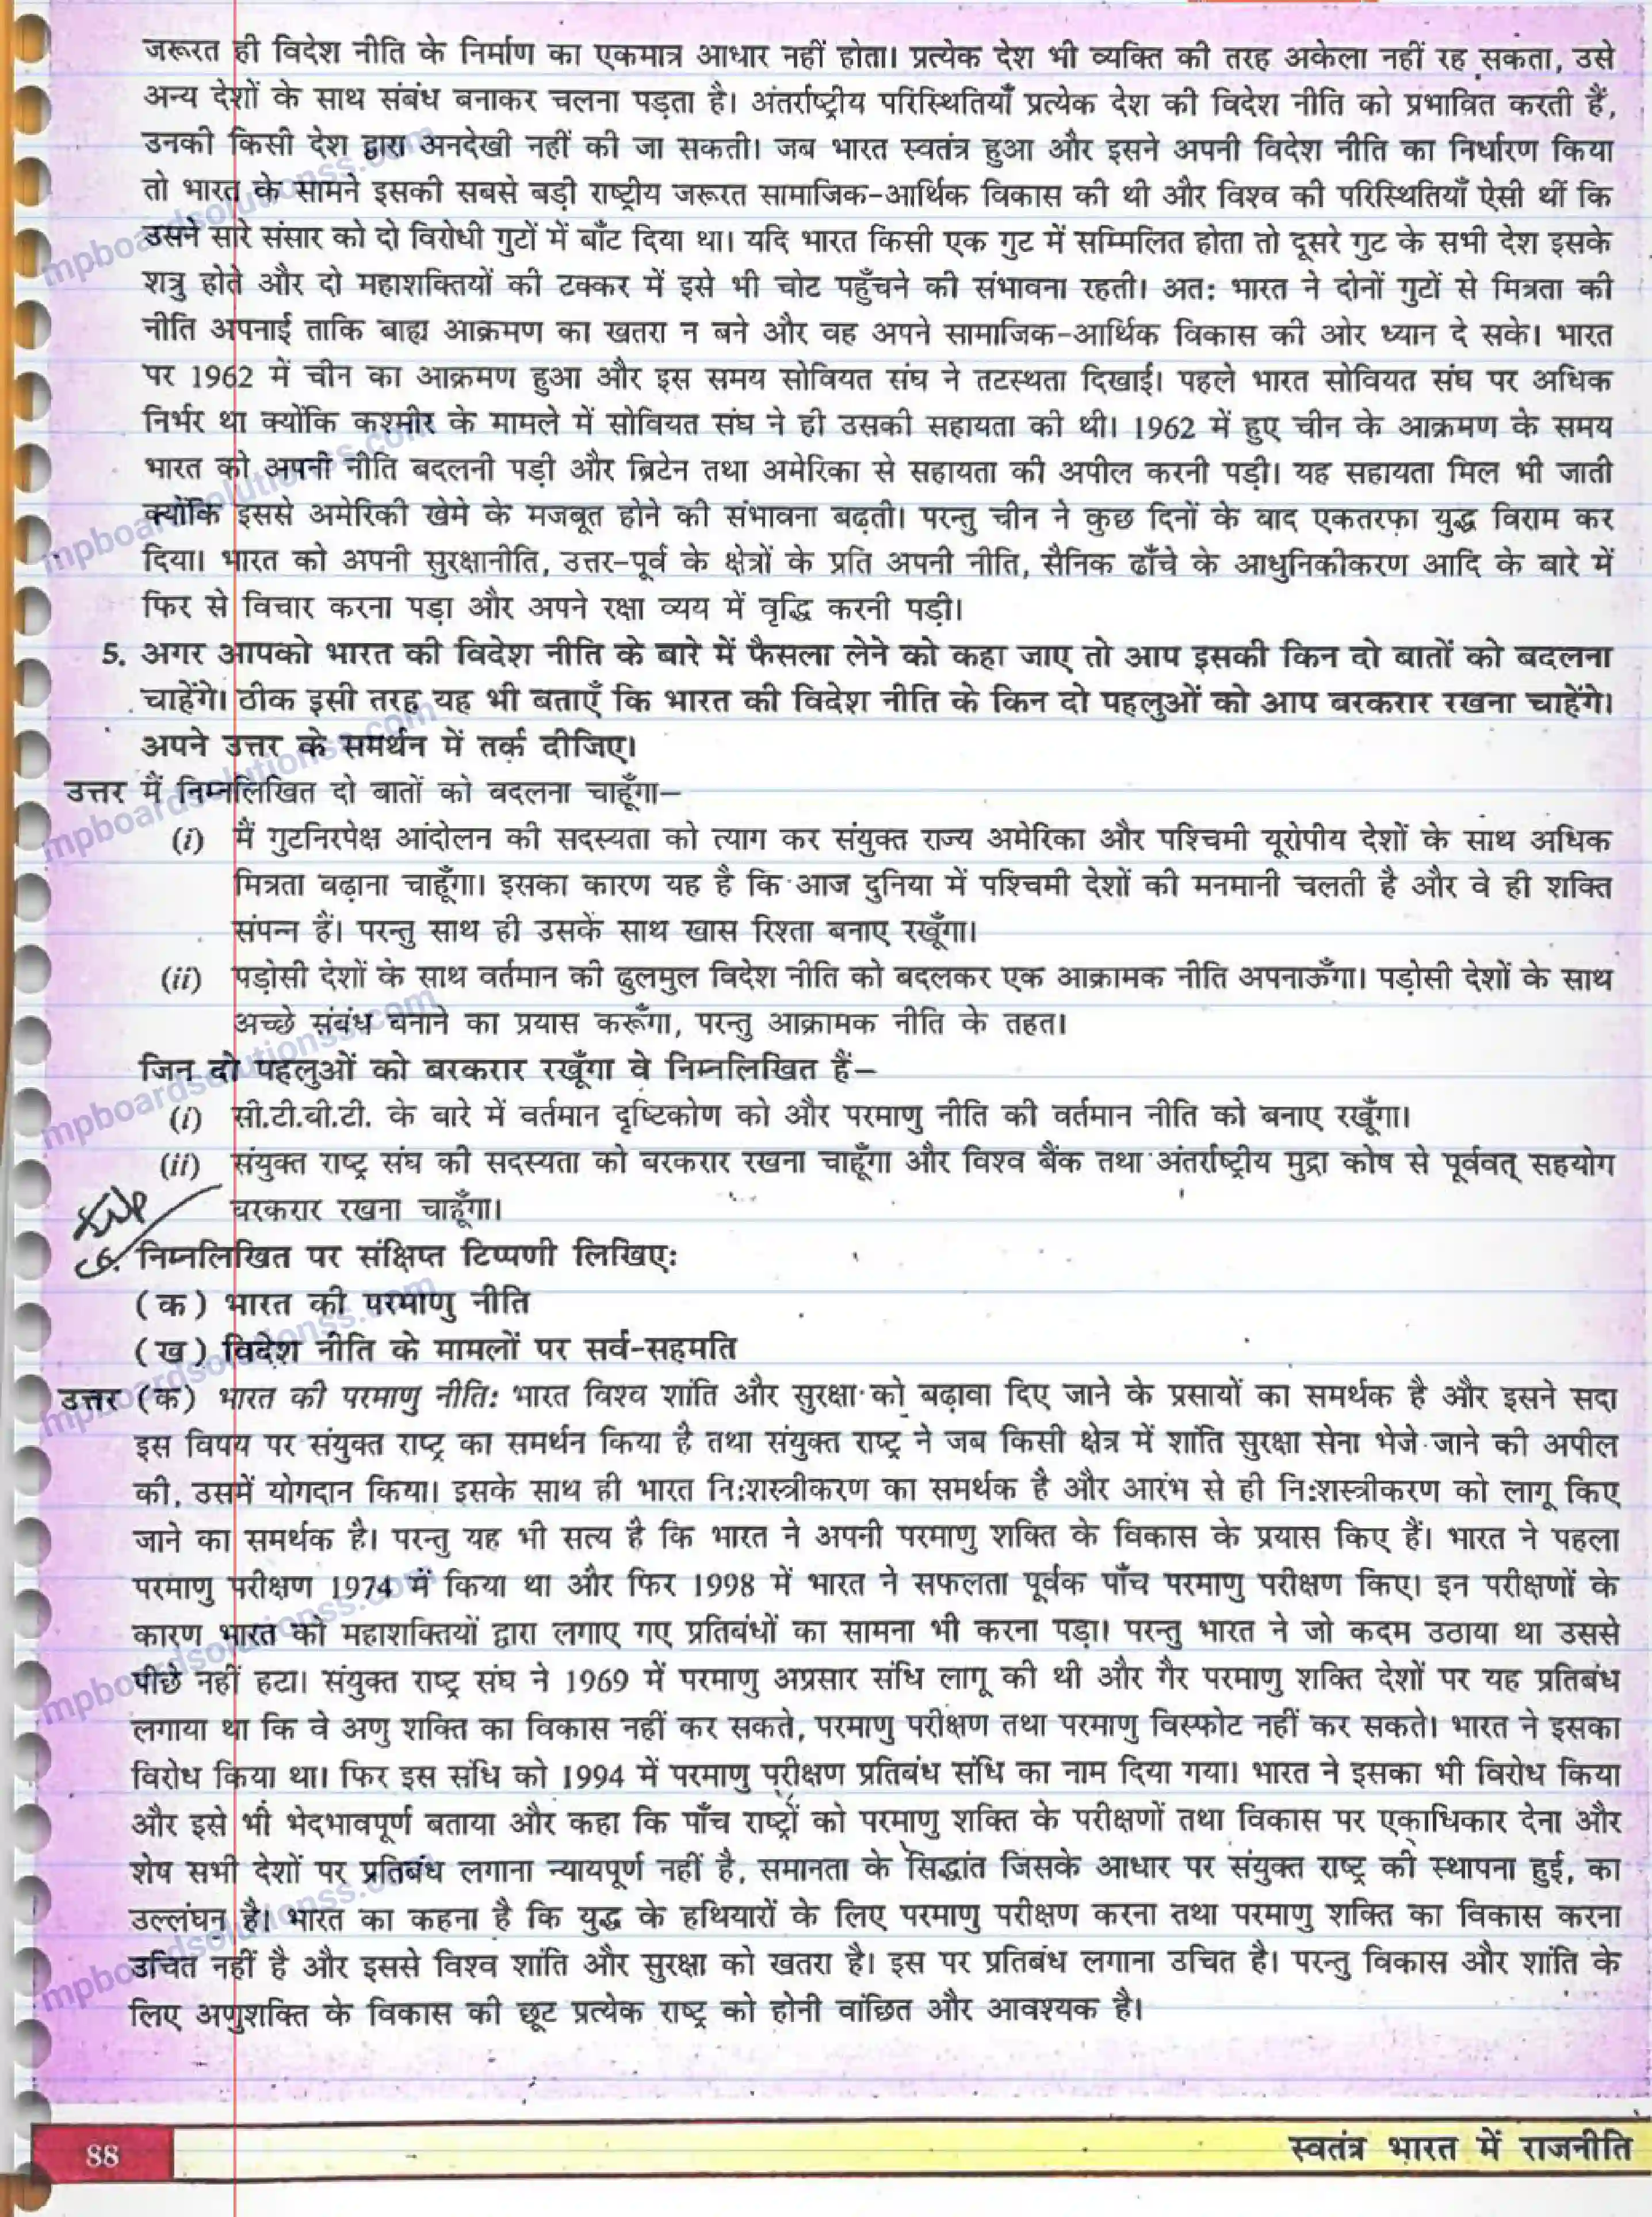 जरूरत ही विदेश नीति के निर्माण का एकमात्र आधार नहीं होता। प्रत्येक देश भी व्यक्ति की तरह अकेला नहीं रह सकता, उसे
अन्य देशों के साथ संबंध बनाकर चलना पड़ता है। अंतर्राष्ट्रीय परिस्थितियाँ प्रत्येक देश की विदेश नीति को प्रभावित करती हैं,
उनकी किसी देश द्वारा अनदेखी नहीं की जा सकती। जब भारत स्वतंत्र हुआ और इसने अपनी विदेश नीति का निर्धारण किया
तो भारत के सामने इसकी सबसे बड़ी राष्ट्रीय जरूरत सामाजिक-आर्थिक विकास की थी और विश्व की परिस्थितियाँ ऐसी थीं कि
उसने सारे संसार को दो विरोधी गुटों में बाँट दिया था। यदि भारत किसी एक गुट में सम्मिलित होता तो दूसरे गुट के सभी देश इसके
शत्रु होते और दो महाशक्तियों की टक्कर में इसे भी चोट पहुँचने की संभावना रहती। अत: भारत ने दोनों गुटों से मित्रता की
नीति अपनाई ताकि बाह्य आक्रमण का खतरा न बने और वह अपने सामाजिक-आर्थिक विकास की ओर ध्यान दे सके। भारत
पर 1962 में चीन का आक्रमण हुआ और इस समय सोवियत संघ ने तटस्थता दिखाई। पहले भारत सोवियत संघ पर अधिक
निर्भर था क्योंकि कश्मीर के मामले में सोवियत संघ ने ही उसकी सहायता की थी। 1962 में हुए चीन के आक्रमण के समय
भारत को अपनी नीति बदलनी पड़ी और ब्रिटेन तथा अमेरिका से सहायता की अपील करनी पड़ी। यह सहायता मिल भी जाती
क्योंकि इससे अमेरिकी खेमे के मजबूत होने की संभावना बढ़ती। परन्तु चीन ने कुछ दिनों के बाद एकतरफा युद्ध विराम कर
दिया। भारत को अपनी सुरक्षानीति, उत्तर-पूर्व के क्षेत्रों के प्रति अपनी नीति, सैनिक ढाँचे के आधुनिकीकरण आदि के बारे में
फिर से विचार करना पड़ा और अपने रक्षा व्यय में वृद्धि करनी पड़ी।
5. अगर आपको भारत की विदेश नीति के बारे में फैसला लेने को कहा जाए तो आप इसकी किन दो बातों को बदलना
चाहेंगे। ठीक इसी तरह यह भी बताएँ कि भारत की विदेश नीति के किन दो पहलुओं को आप बरकरार रखना चाहेंगे।
अपने उत्तर के समर्थन में तर्क दीजिए।
उत्तर मैं निम्नलिखित दो बातों को बदलना चाहूँगा–
(i) मैं गुटनिरपेक्ष आंदोलन की सदस्यता को त्याग कर संयुक्त राज्य अमेरिका और पश्चिमी यूरोपीय देशों के साथ अधिक
मित्रता बढ़ाना चाहूँगा। इसका कारण यह है कि आज दुनिया में पश्चिमी देशों की मनमानी चलती है और वे ही शक्ति
संपन्न हैं। परन्तु साथ ही उसके साथ खास रिश्ता बनाए रखूँगा।
(ii) पड़ोसी देशों के साथ वर्तमान की ढुलमुल विदेश नीति को बदलकर एक आक्रामक नीति अपनाऊँगा। पड़ोसी देशों के साथ
अच्छे संबंध बनाने का प्रयास करूँगा, परन्तु आक्रामक नीति के तहत।
जिन दो पहलुओं को बरकरार रखूँगा वे निम्नलिखित हैं–
(i) सी.टी.बी.टी. के बारे में वर्तमान दृष्टिकोण को और परमाणु नीति की वर्तमान नीति को बनाए रखूँगा।
(ii) संयुक्त राष्ट्र संघ की सदस्यता को बरकरार रखना चाहूँगा और विश्व बैंक तथा अंतर्राष्ट्रीय मुद्रा कोष से पूर्ववत् सहयोग
बरकरार रखना चाहूँगा।
6. निम्नलिखित पर संक्षिप्त टिप्पणी लिखिए:
(क) भारत की परमाणु नीति
(ख) विदेश नीति के मामलों पर सर्व-सहमति
उत्तर (क) भारत की परमाणु नीति: भारत विश्व शांति और सुरक्षा को बढ़ावा दिए जाने के प्रसायों का समर्थक है और इसने सदा
इस विषय पर संयुक्त राष्ट्र का समर्थन किया है तथा संयुक्त राष्ट्र ने जब किसी क्षेत्र में शांति सुरक्षा सेना भेजे जाने की अपील
की, उसमें योगदान किया। इसके साथ ही भारत नि:शस्त्रीकरण का समर्थक है और आरंभ से ही नि:शस्त्रीकरण को लागू किए
जाने का समर्थक है। परन्तु यह भी सत्य है कि भारत ने अपनी परमाणु शक्ति के विकास के प्रयास किए हैं। भारत ने पहला
परमाणु परीक्षण 1974 में किया था और फिर 1998 में भारत ने सफलता पूर्वक पाँच परमाणु परीक्षण किए। इन परीक्षणों के
कारण भारत को महाशक्तियों द्वारा लगाए गए प्रतिबंधों का सामना भी करना पड़ा। परन्तु भारत ने जो कदम उठाया था उससे
पीछे नहीं हटा। संयुक्त राष्ट्र संघ ने 1969 में परमाणु अप्रसार संधि लागू की थी और गैर परमाणु शक्ति देशों पर यह प्रतिबंध
लगाया था कि वे अणु शक्ति का विकास नहीं कर सकते, परमाणु परीक्षण तथा परमाणु विस्फोट नहीं कर सकते। भारत ने इसका
विरोध किया था। फिर इस संधि को 1994 में परमाणु परीक्षण प्रतिबंध संधि का नाम दिया गया। भारत ने इसका भी विरोध किया
और इसे भी भेदभावपूर्ण बताया और कहा कि पाँच राष्ट्रों को परमाणु शक्ति के परीक्षणों तथा विकास पर एकाधिकार देना और
शेष सभी देशों पर प्रतिबंध लगाना न्यायपूर्ण नहीं है, समानता के सिद्धांत जिसके आधार पर संयुक्त राष्ट्र की स्थापना हुई, का
उल्लंघन है। भारत का कहना है कि युद्ध के हथियारों के लिए परमाणु परीक्षण करना तथा परमाणु शक्ति का विकास करना
उचित नहीं है और इससे विश्व शांति और सुरक्षा को खतरा है। इस पर प्रतिबंध लगाना उचित है। परन्तु विकास और शांति के
लिए अणुशक्ति के विकास की छूट प्रत्येक राष्ट्र को होनी वांछित और आवश्यक है।
88
स्वतंत्र भारत में राजनीति
mpboardsolutionss.com
mpboardsolutionss.com
mpboardsolutionss.com
mpboardsolutionss.com
mpboardsolutionss.com
mpboardsolutionss.com
mpboardsolutionss.com